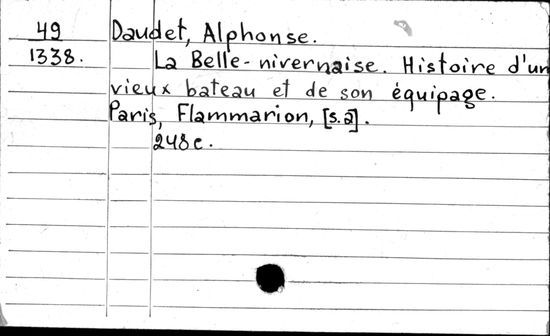 49 Daudet, Alphonse.
1338. La Belle-nivernaise. Histoire d'un
vieux bateau et de son équipage.
Paris, Flammarion, [s.a].
248c.